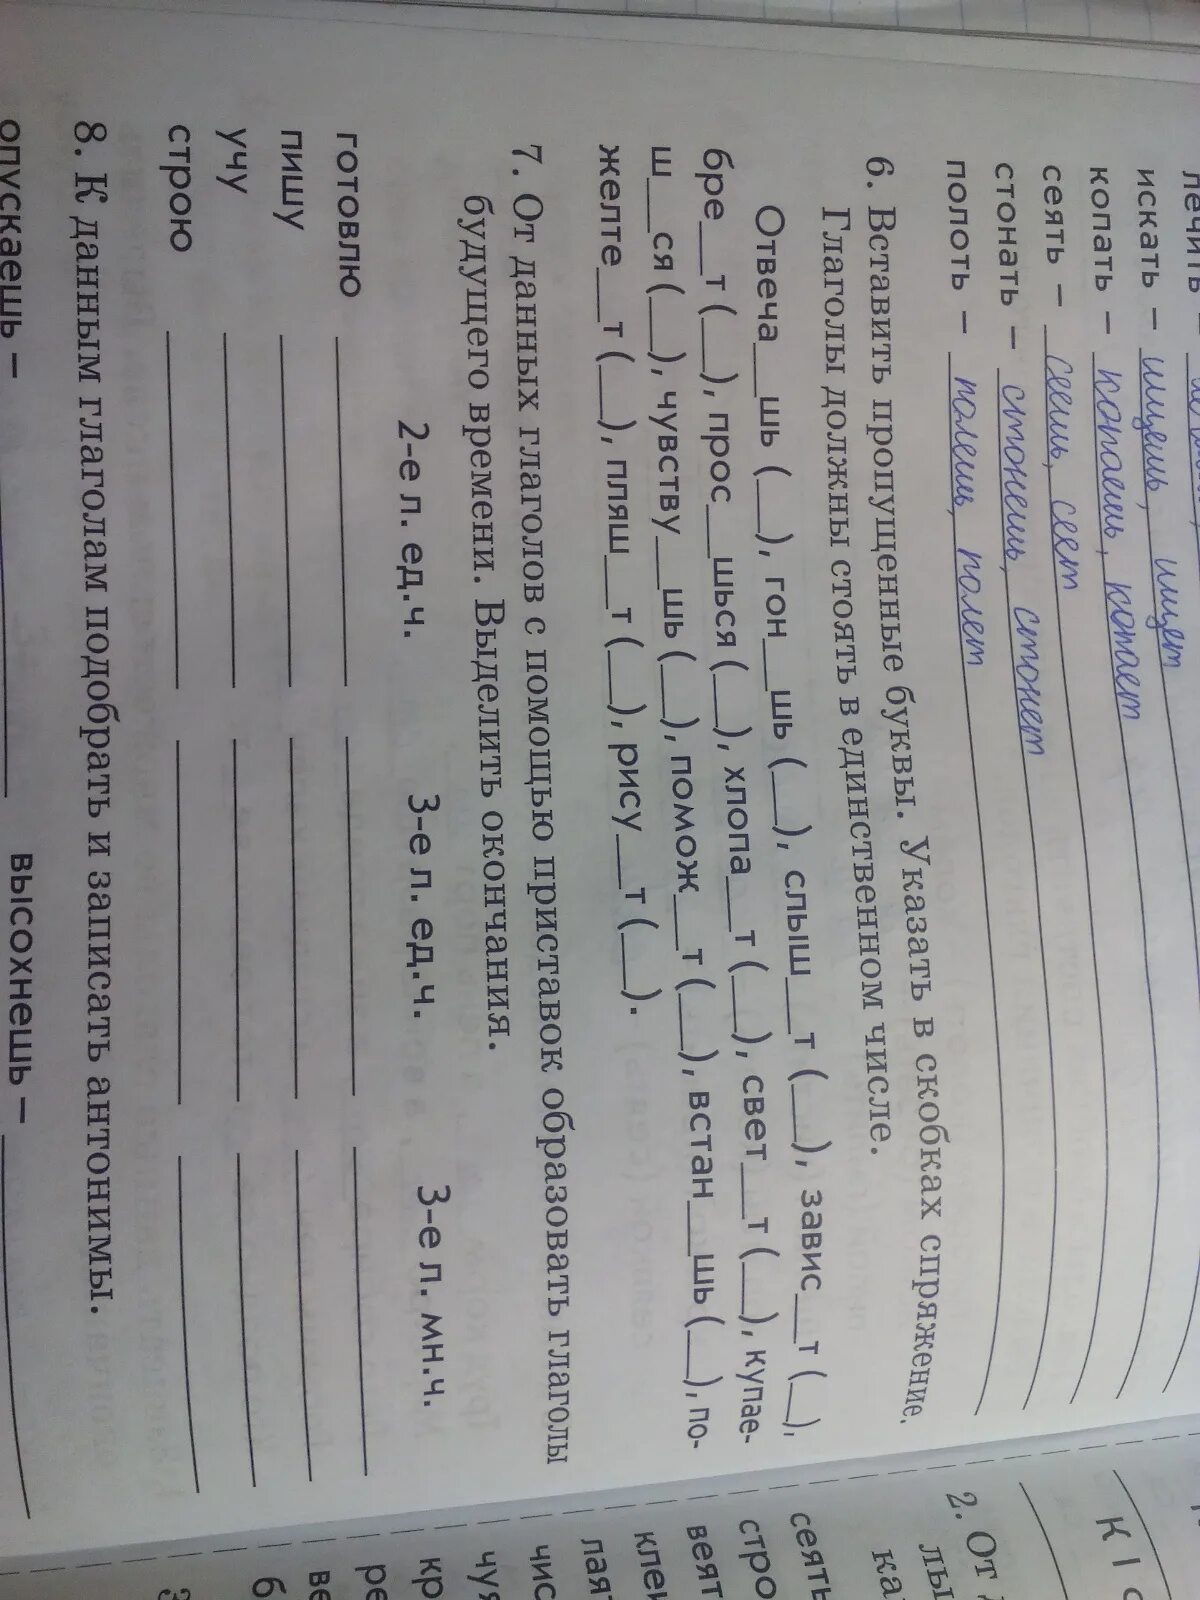 лечить
искать – ищешь, ищет
копать – копаешь, копает
сеять – сеешь, сеет
стонать – стонешь, стонет
полоть – полешь, полет
6. Вставить пропущенные буквы. Указать в скобках спряжение.
Глаголы должны стоять в единственном числе.
Отвеча__шь (__), гон__шь (__), слыш__т (__), завис__т (__),
бре__т (__), прос__шься (__), хлопа__т (__), свет__т (__), купае-
ш__ся (__), чувству__шь (__), помож__т (__), встан__шь (__), по-
желте__т (__), пляш__т (__), рису__т (__).
7. От данных глаголов с помощью приставок образовать глаголы
будущего времени. Выделить окончания.
2-е л. ед.ч. 3-е л. ед.ч. 3-е л. мн.ч.
готовлю
пишу
учу
строю
8. К данным глаголам подобрать и записать антонимы.
опускаешь – высохнешь –
К I с
2. От
лы
ка
сеять
стро
веят
клеи
лая
чис
чу
кр
ре
ве
б
З